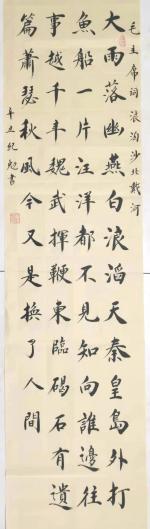 毛主席詞浪淘沙北戴河
大雨落幽燕白浪滔天秦皇島外打
魚船一片汪洋都不見知向誰邊往
事越千年魏武揮鞭東臨碣石有遺
篇蕭瑟秋風今又是換了人間
辛丑紀書